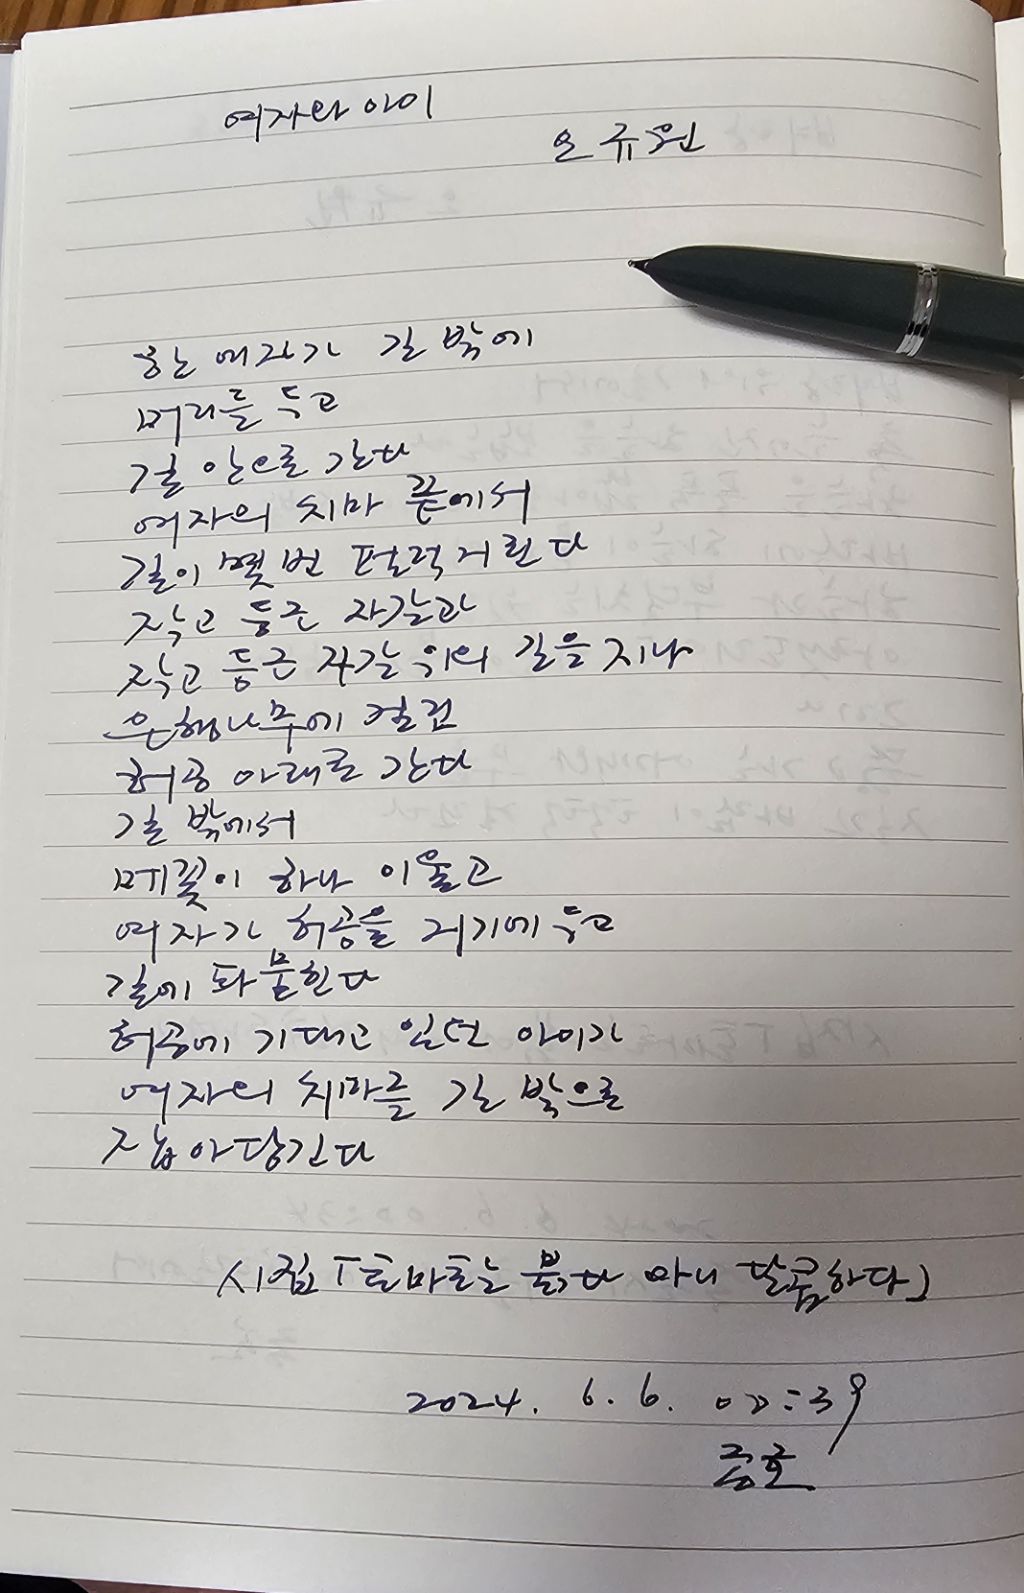 여자와 아이
오규원
한 여자가 길 밖에
머리를 두고
길 안으로 간다
여자의 치마 끝에서
길이 몇 번 펄럭거린다
작고 둥근 자갈과
작고 둥근 자갈 위의 길을 지나
은행나무에 걸린
허공 아래로 간다
길 밖에서
메꽃이 하나 이울고
여자가 허공을 거기에 두고
길에 파묻힌다
허공에 기대고 있던 아이가
여자의 치마를 길 밖으로
잡아당긴다
시집 「토마토는 붉다 아니 달콤하다」
2024. 6. 6. 00:39